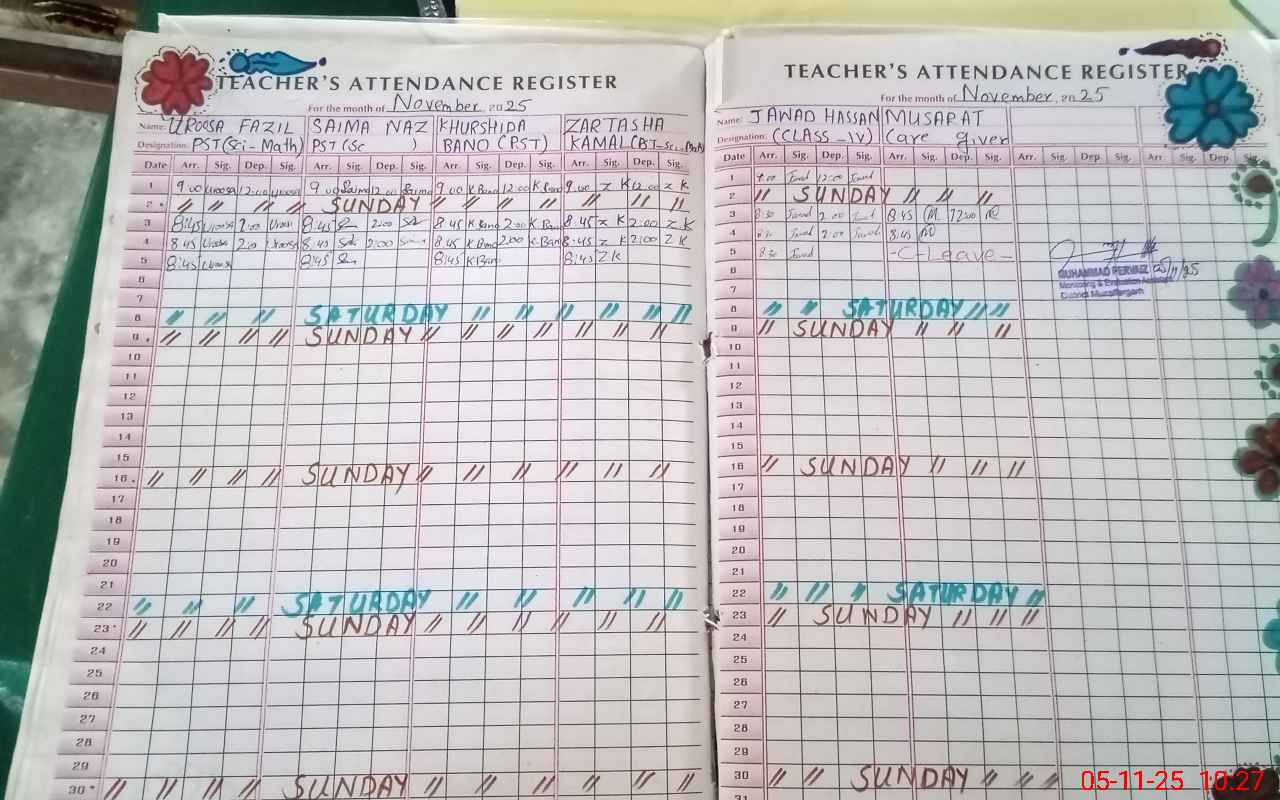 TEACHER'S ATTENDANCE REGISTER
For the month of November 2025
Name: UROOSA FAZIL SAIMA NAZ KHURSHIDA ZARTASHA
Designation: PST(Sci-Math) PST(Sc ) BANO (PST) KAMAL
Date Arr. Sig. Dep. Sig. Arr. Sig. Dep. Sig. Arr. Sig. Dep. Sig. Arr. Sig. Dep. Sig.
1 9 00 Uroosa 12:00 Uroosa 9 00 Saima 12 00 Saima 9 00 K Bano 12:00 K Bano 9 00 Z K 12:00 Z K
2 " " " " SUNDAY " " " " "
3 8:45 Uroosa 2:00 Uroosa 8:45 2:00 8 45 K Bano 2:00 K Bano 8:45 Z K 2:00 Z K
4 8:45 Uroosa 2:00 Uroosa 8:45 2:00 8:45 K Bano 2:00 K Bano 8:45 Z K 2:00 Z K
5 8:45 Uroosa 8:45 8:45 K Bano 8:45 Z K
6
7
8 " " " SATURDAY " " " " " " "
9 " " " " SUNDAY " " " " " " "
10
11
12
13
14
15
16 " " " " SUNDAY " " " " " "
17
18
19
20
21
22 " " " SATURDAY " " " " "
23 " " " " SUNDAY " " " " " "
24
25
26
27
28
29
30 " " " " SUNDAY " " " " " "
TEACHER'S ATTENDANCE REGISTER
For the month of November, 2025
Name: JAWAD HASSAN MUSARAT
Designation: (CLASS-IV) (Care giver
Date Arr. Sig. Dep. Sig. Arr. Sig. Dep. Sig. Arr. Sig. Dep. Sig. Arr. Sig. Dep. Sig.
1 9.00 Jawad 12:00 Jawad
2 " SUNDAY " " "
3 8:30 Jawad 2:00 8:45 M 12:00
4 8:30 Jawad 2:00 Jawad 8:45 M
5 8:30 Jawad -C-Leave-
6
MUHAMMAD PERVAIZ 05/11/25
Monitoring & Evaluation
District Muzaffargarh
7
8 " " SATURDAY " "
9 " SUNDAY " " "
10
11
12
13
14
15
16 " SUNDAY " " "
17
18
19
20
21
22 " " " SATURDAY "
23 " SUNDAY " " " "
24
25
26
27
28
29
30 " " SUNDAY " " "
31
05-11-25 10:27